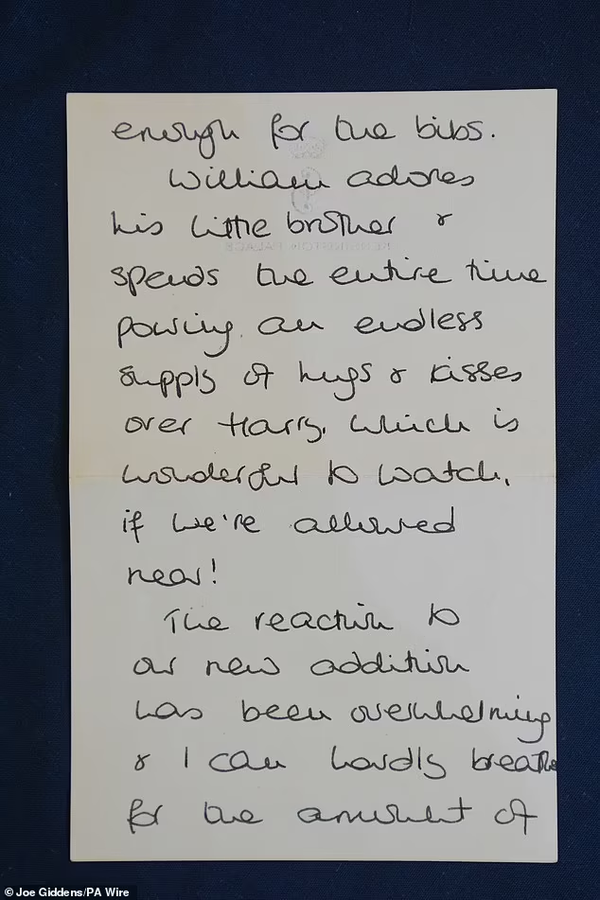 enough for the bibs.
William adores
his little brother &
spends the entire time
pouring an endless
supply of hugs & kisses
over Harry, which is
wonderful to watch,
if we're allowed
near!
The reaction to
our new addition
has been overwhelming
& I can hardly breathe
for the amount of
© Joe Giddens/PA Wire